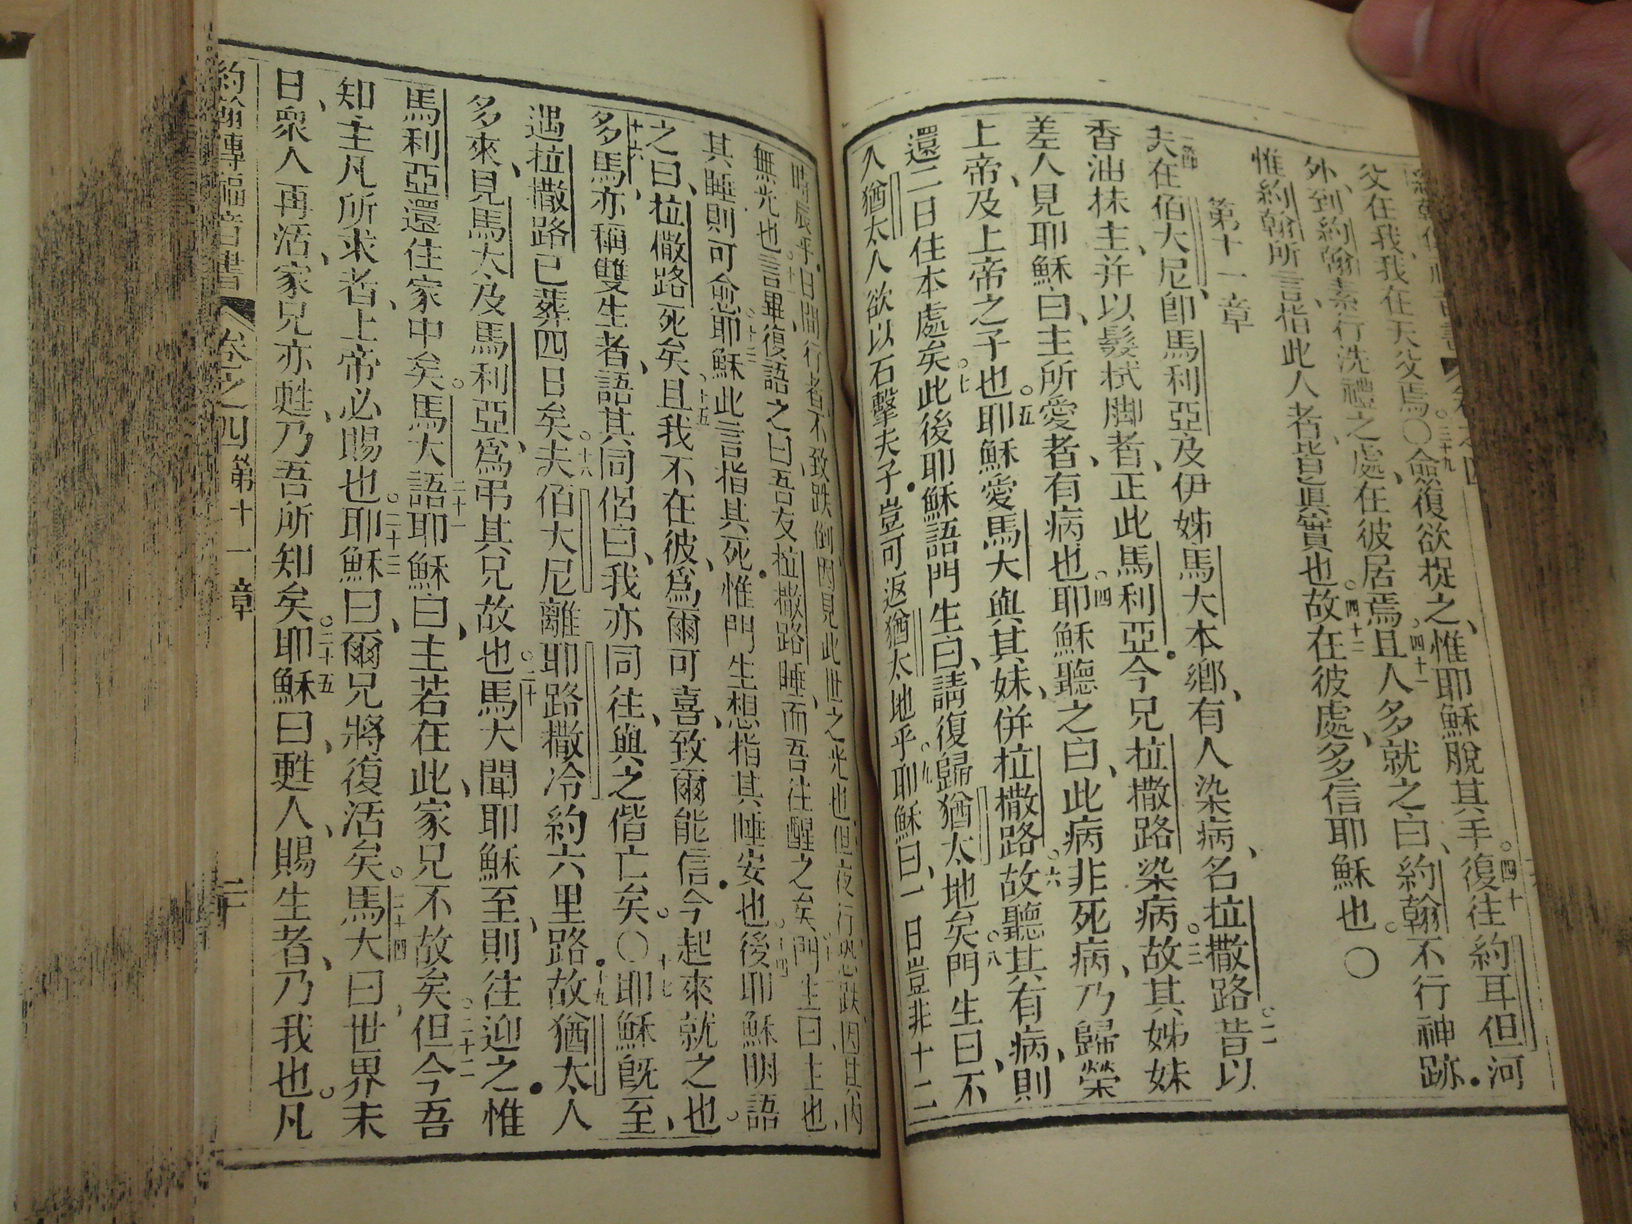 父在我我在天父焉〇僉復欲捉之惟耶穌脫其手復往約耳但河
外到約翰素行洗禮之處在彼居焉且人多就之曰約翰不行神跡
惟約翰所言指此人者皆眞實也故在彼處多信耶穌也〇
第十一章
夫在伯大尼卽馬利亞及伊姊馬大本鄉有人染病名拉撒路昔以
香油抹主并以髮拭脚者正此馬利亞今兄拉撒路染病故其姊妹
差人見耶穌曰主所愛者有病也耶穌聽之曰此病非死病乃歸榮
上帝及上帝之子也耶穌愛馬大與其妹併拉撒路故聽其有病則
還二日住本處矣此後耶穌語門生曰請復歸猶太地矣門生曰不
久猶太人欲以石擊夫子豈可返猶太地乎耶穌曰一日豈非十二
時辰乎日間行者不致跌倒因見此世之光也但夜行恐跌因其內
無光也言畢復語之曰吾友拉撒路睡而吾往醒之矣門生曰主也
其睡則可愈耶穌此言指其死惟門生想指其睡安也後耶穌明語
之曰拉撒路死矣且我不在彼爲爾可喜致爾能信今起來就之也
多馬亦稱雙生者語其同侶曰我亦同往與之偕亡矣〇耶穌旣至
遇拉撒路已葬四日矣夫伯大尼離耶路撒冷約六里路故猶太人
多來見馬大及馬利亞爲弔其兄故也馬大聞耶穌至則往迎之惟
馬利亞還住家中矣馬大語耶穌曰主若在此家兄不故矣但今吾
知主凡所求者上帝必賜也耶穌曰爾兄將復活矣馬大曰世界末
日衆人再活家兄亦甦乃吾所知矣耶穌曰甦人賜生者乃我也凡
約翰傳福音書 卷之四 第十一章 二十